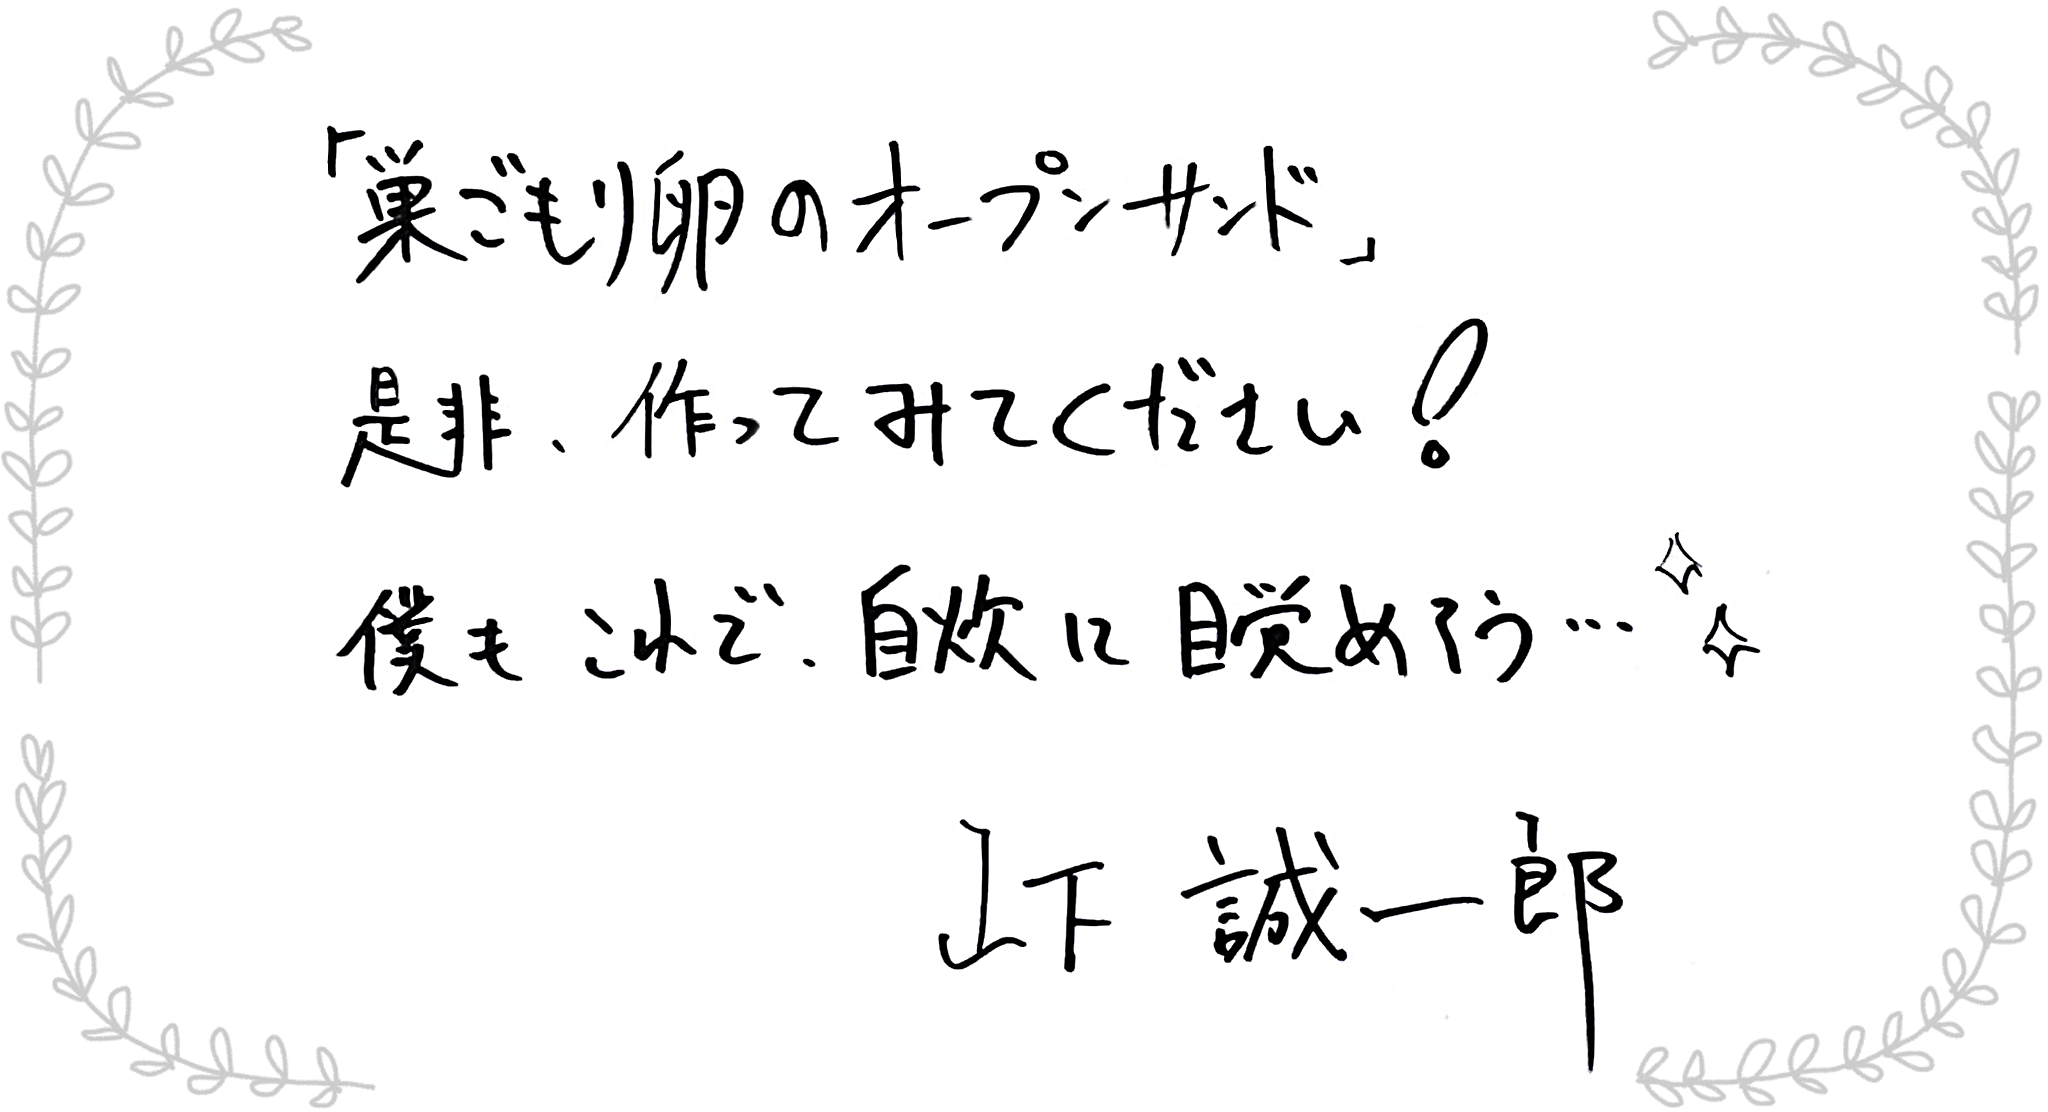 「巣ごもり卵のオープンサンド」
是非、作ってみてください!
僕もこれで、自炊に目覚めろう…
山下 誠一郎